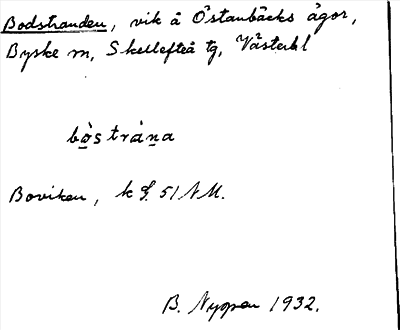 Bodstranden, vik å Östanbäcks ägor,
Byske sn, Skellefteå tg, Västerbl
bo̲̊strȧn̲a
Boviken, k bl. 51 NM.
B. Nyman 1932.